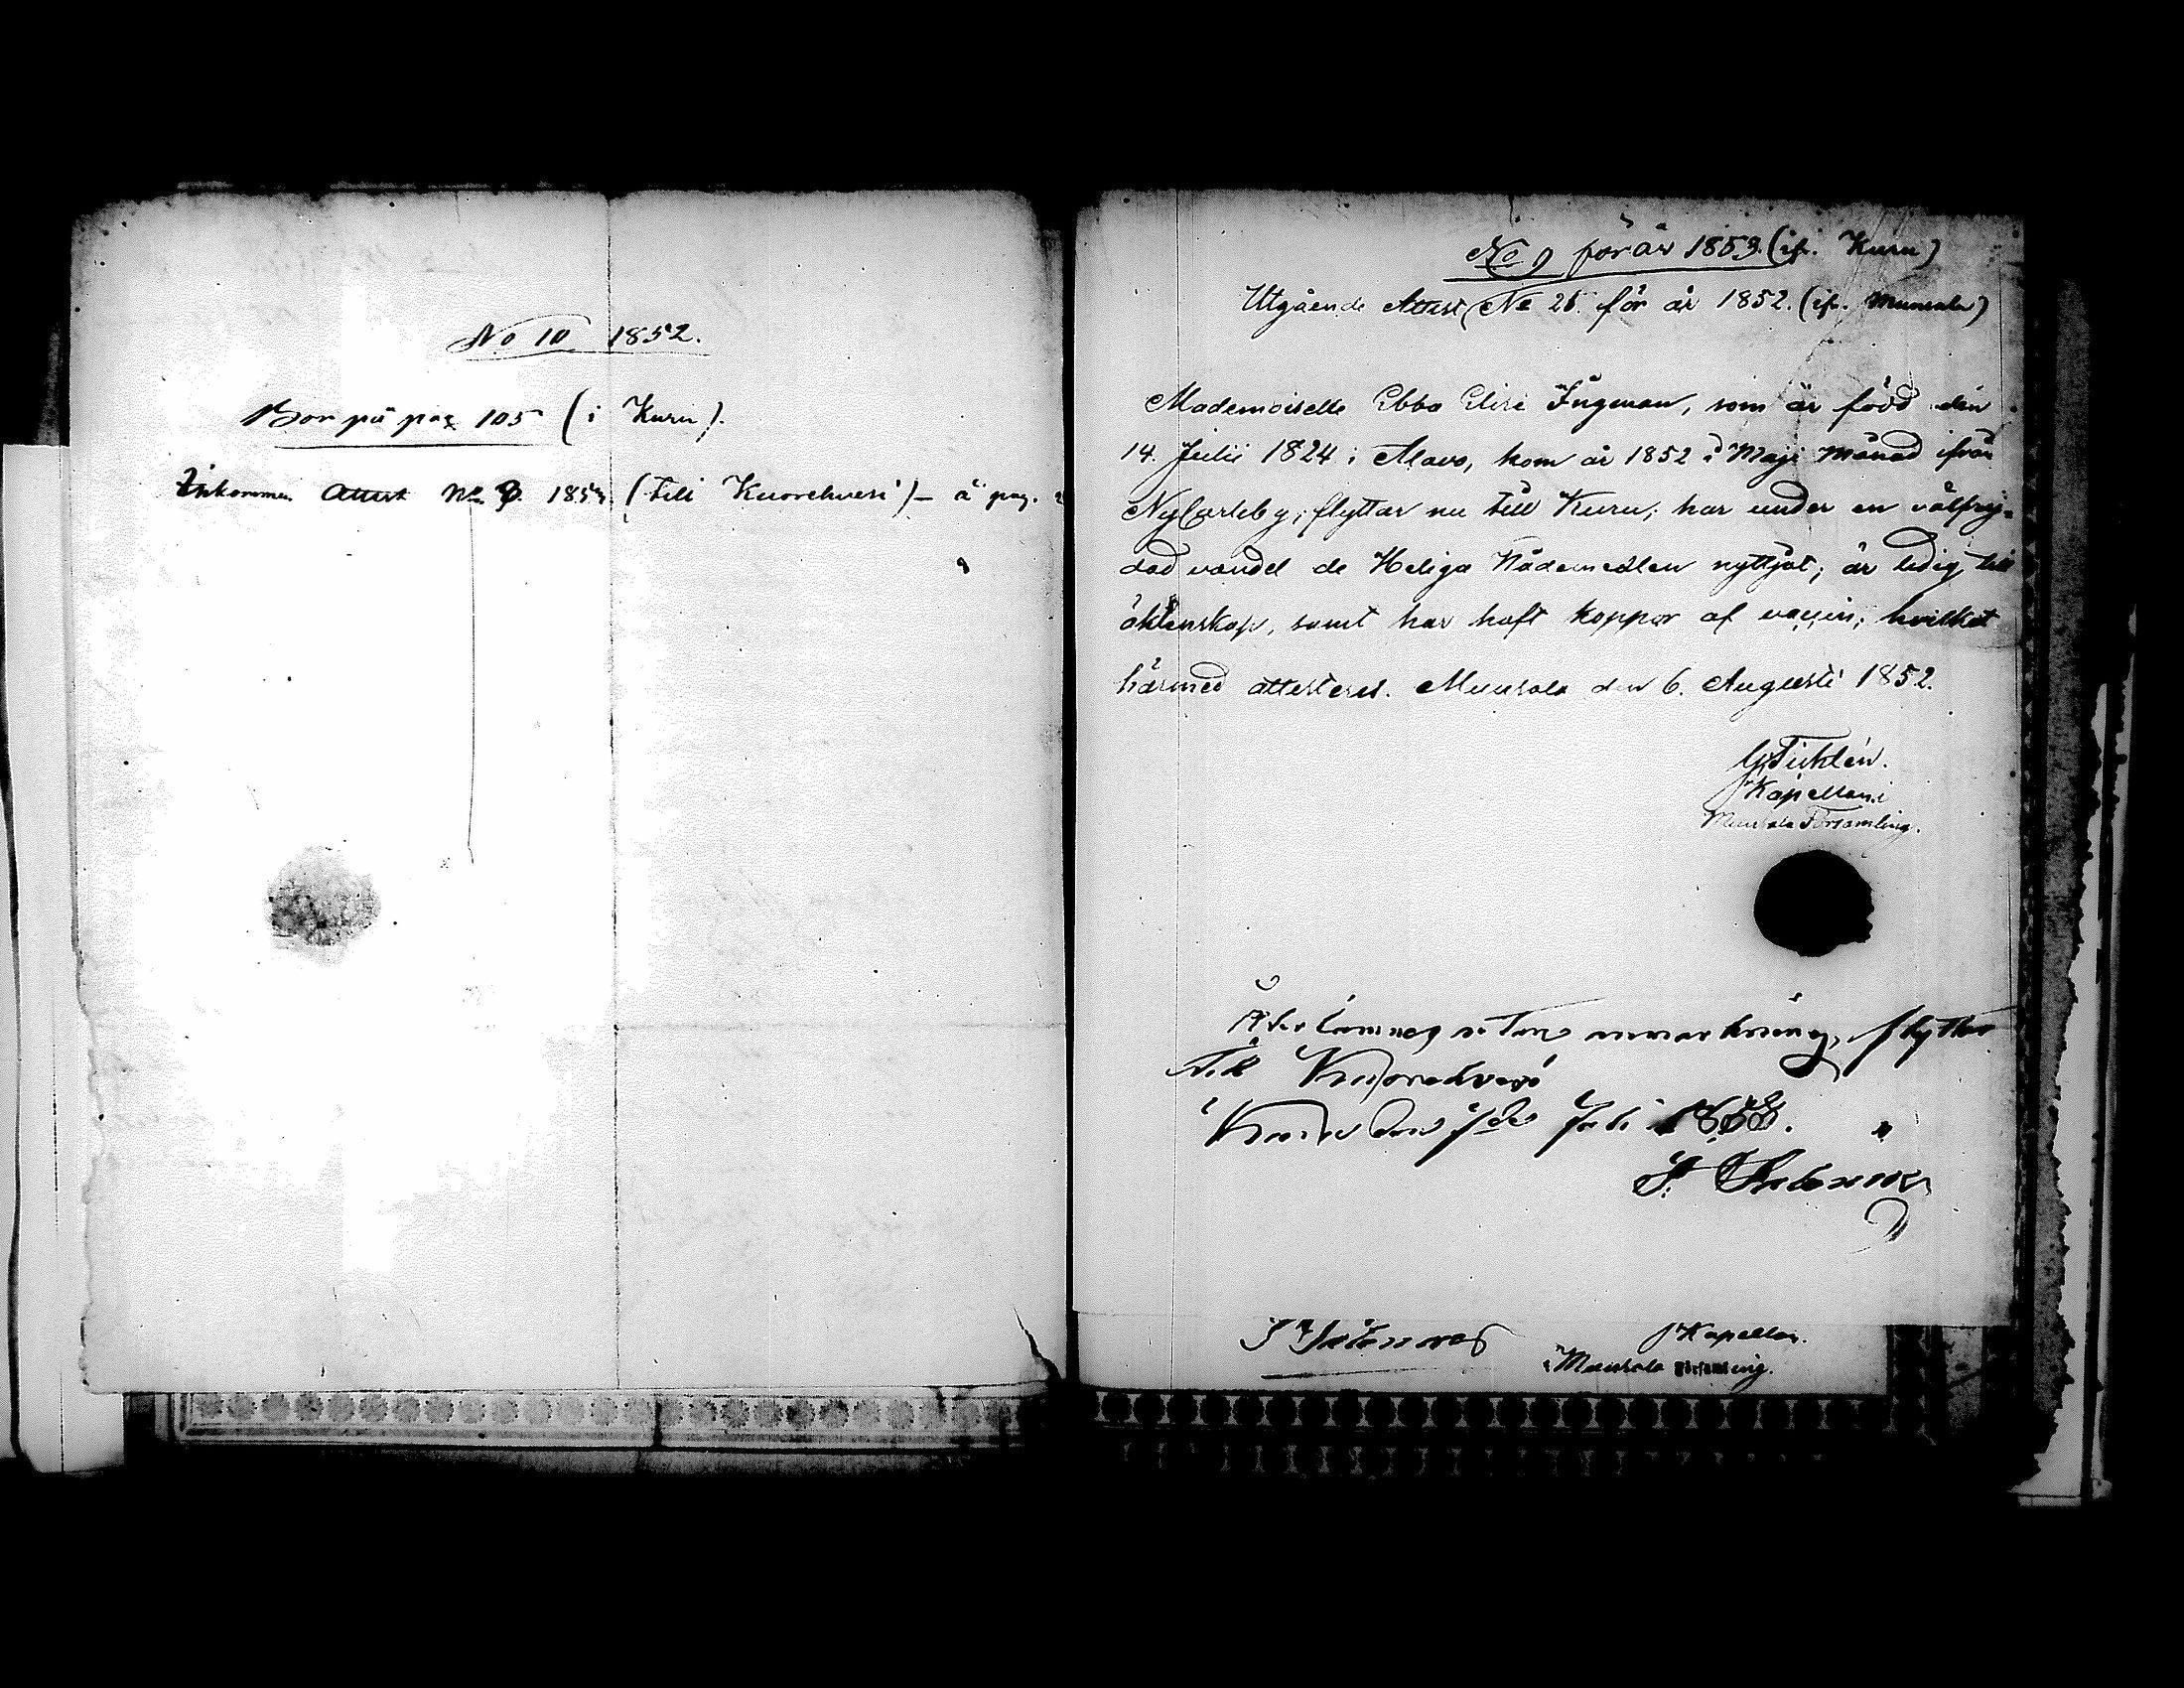 No 10 1852.
Bor på pag 105 (i Kuru).
Inkommen Attest No 9. 1853. (till Kuorehvesi) – å pag.
No 9 för år 1853. (ifr. Kuru)
Utgående Attest No 25. för år 1852. (ifr. Munsala)
Mademoiselle Ebba Elise Ingman, som är född den
14. Julii 1824 i Alavo, kom år 1852 i Maji Månad ifrån
NyCarleby; flyttar nu till Kuru; har under en välfrej-
dad vandel de Heliga Nådemedlen nyttjat; är ledig till
äktenskap, samt har haft koppor af vaccin; hvilket
härmed attesteras. Munsala den 6. Augusti 1852.
Kapellan i
Munsala Församling.
Återlemnas utan anmärkning, flyttar
till Kuorehvesi
Kuru den Juli 1853.
Kapellan.
i Munsala Församling.